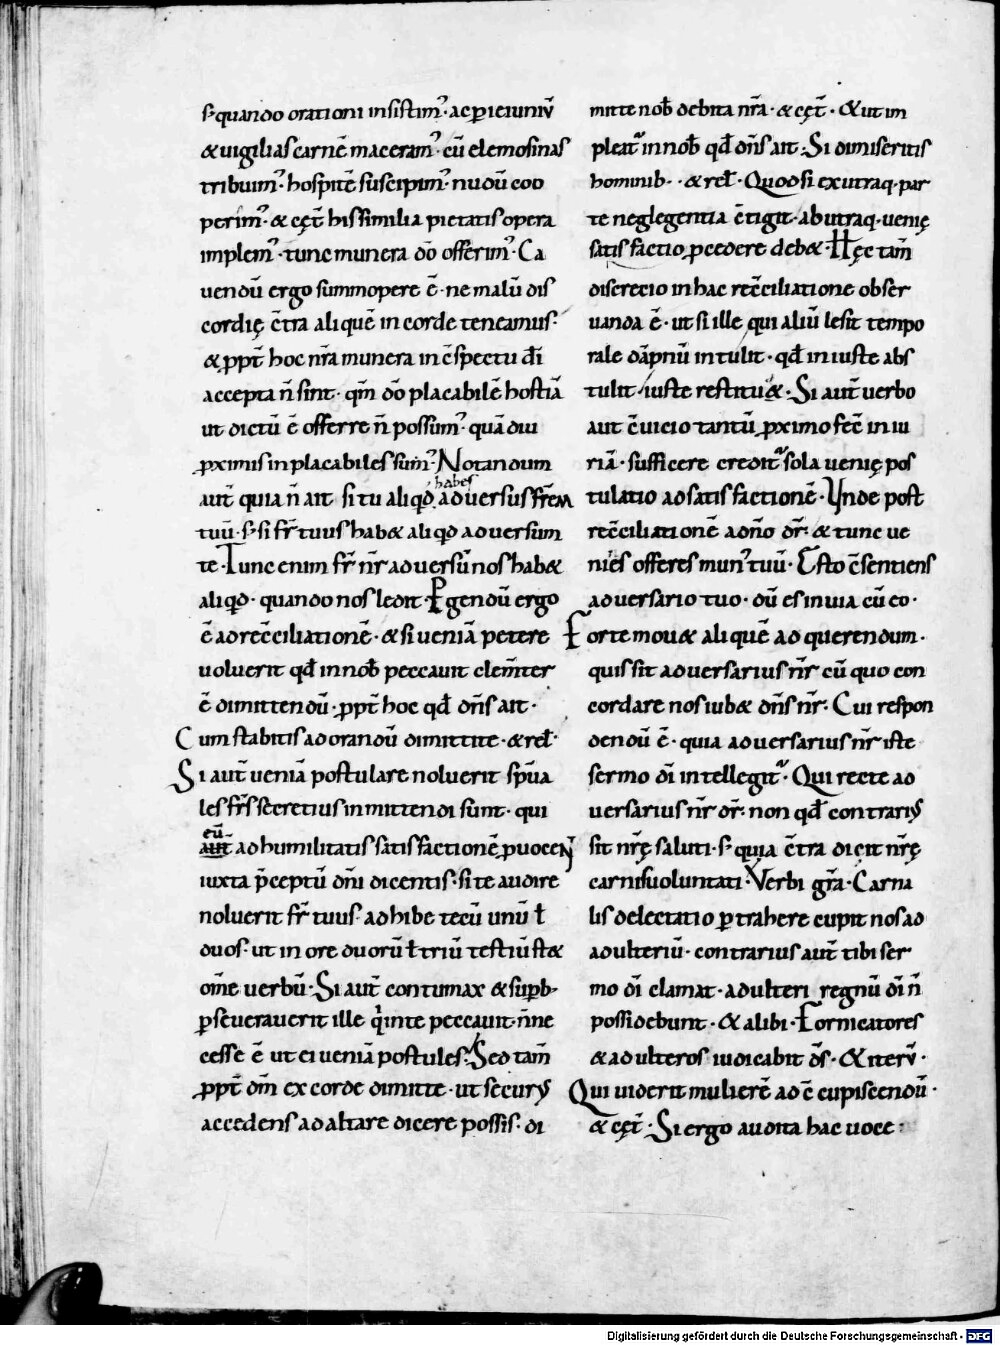 s; quando orationi insistim᷒· ac p̱ ieiuniū
& uigilias carnē maceram᷒· cū elemosinas
tribuim᷒· hospitē suscipim᷒· nudū coo
perim᷒· & cęt̄ his similia pietatis opera
implem᷒· tunc munera dō offerim᷒· Ca
uendū ergo summopere ē· ne malū dis
cordię c̄tra aliquē in corde teneamus·
& ꝓpt̄ hoc nr̄a munera in c̄spectu dī
accepta n̄ sint· qm̄ dō placabilē hostiā
ut dictū ē offerre n̄ possum᷒· quādiu
ꝓximis inplacabiles sum᷒· Notandum
aut̄ quia n̄ ait si tu aliqd̄ habes aduersus fr̄em
tuū· s; si fr̄ tuus hab& aliqd̄ aduersum
te· Tunc enim fr̄ nr̄ aduersū nos hab&
aliqd̄· quando nos ledit· Ꝑgendū ergo
ē ad rec̄ciliationē· & si ueniā petere
uoluerit qd̄ in nob̄ peccauit clem̄ter
ē dimittendū· ꝓpt̄ hoc qd̄ dn̄s ait·
Cum stabitis ad orandū dimittite· & rel̄·
Si aut̄ ueniā postulare noluerit sp̄ua
les fr̄s secretius inmittendi sunt· qui
eū
aut̄ ad humilitatis satisfactionē ꝓuocen̄
iuxta p̄ceptū dn̄i dicentis· si te audire
noluerit fr̄ tuus· adhibe tecū unū ł
duos· ut in ore duorū ł triū testiū st&
om̄e uerbū· Si aut̄ contumax & sup̱b·
p̱seuerauerit ille q̇ in te peccauit· n̄ ne
cesse ē ut ei ueniā postules· Sed tam̄
ꝓpt̄ dm̄ ex corde dimitte· ut securꝰ
accedens ad altare dicere possis· di
mitte nob̄ debita nr̄a· & cęt̄· & ut im
pleat᷑ in nob̄ qd̄ dn̄s ait· Si dimiseritis
hominib·· & rel̄· Quodsi ex utraq· par
te neglegentia c̄tigit· ab utraq· uenię
satisfactio p̱cedere deb&· Hęc tam̄
discretio in hac rec̄ciliatione obser
uanda ē· ut si ille qui aliū lesit tempo
rale dāpnū intulit· qd̄ iniuste abs
tulit· iuste restitu&· Si aut̄ uerbo
aut c̄uicio tantū ꝓximo fec̄ iniu
riā· sufficere credit᷑ sola uenię pos
tulatio ad satisfactionē· Unde post
rec̄ciliationē a dn̄o dr̄· & tunc ue
nies offeres mun᷒ tuū· Esto c̄sentiens
aduersario tuo· dū es in uia cū eo·
Forte mou& aliquē ad querendum·
quis sit aduersarius nr̄ cū quo con
cordare nos iub& dn̄s nr̄· Cui respon
dendū ē· quia aduersarius nr̄ iste
sermo dī intellegit᷑· Qui recte ad
uersarius nr̄ dr̄· non qd̄ contrariꝰ
sit nr̄ę saluti· s; quia c̄tra dicit nr̄ę
carnis uoluntati· Verbi gr̄a· Carna
lis delectatio p̱trahere cupit nos ad
adulteriū· contrarius aut̄ tibi ser
mo dī clamat· adulteri regnū dī n̄
possidebunt· & alibi· Fornicatores
& adulteros iudicabit ds̄· & iterū·
Qui uiderit mulierē ad c̄cupiscendū·
& cęt̄· Si ergo audita hac uoce·
Digitalisierung gefördert durch die Deutsche Forschungsgemeinschaft - DFG